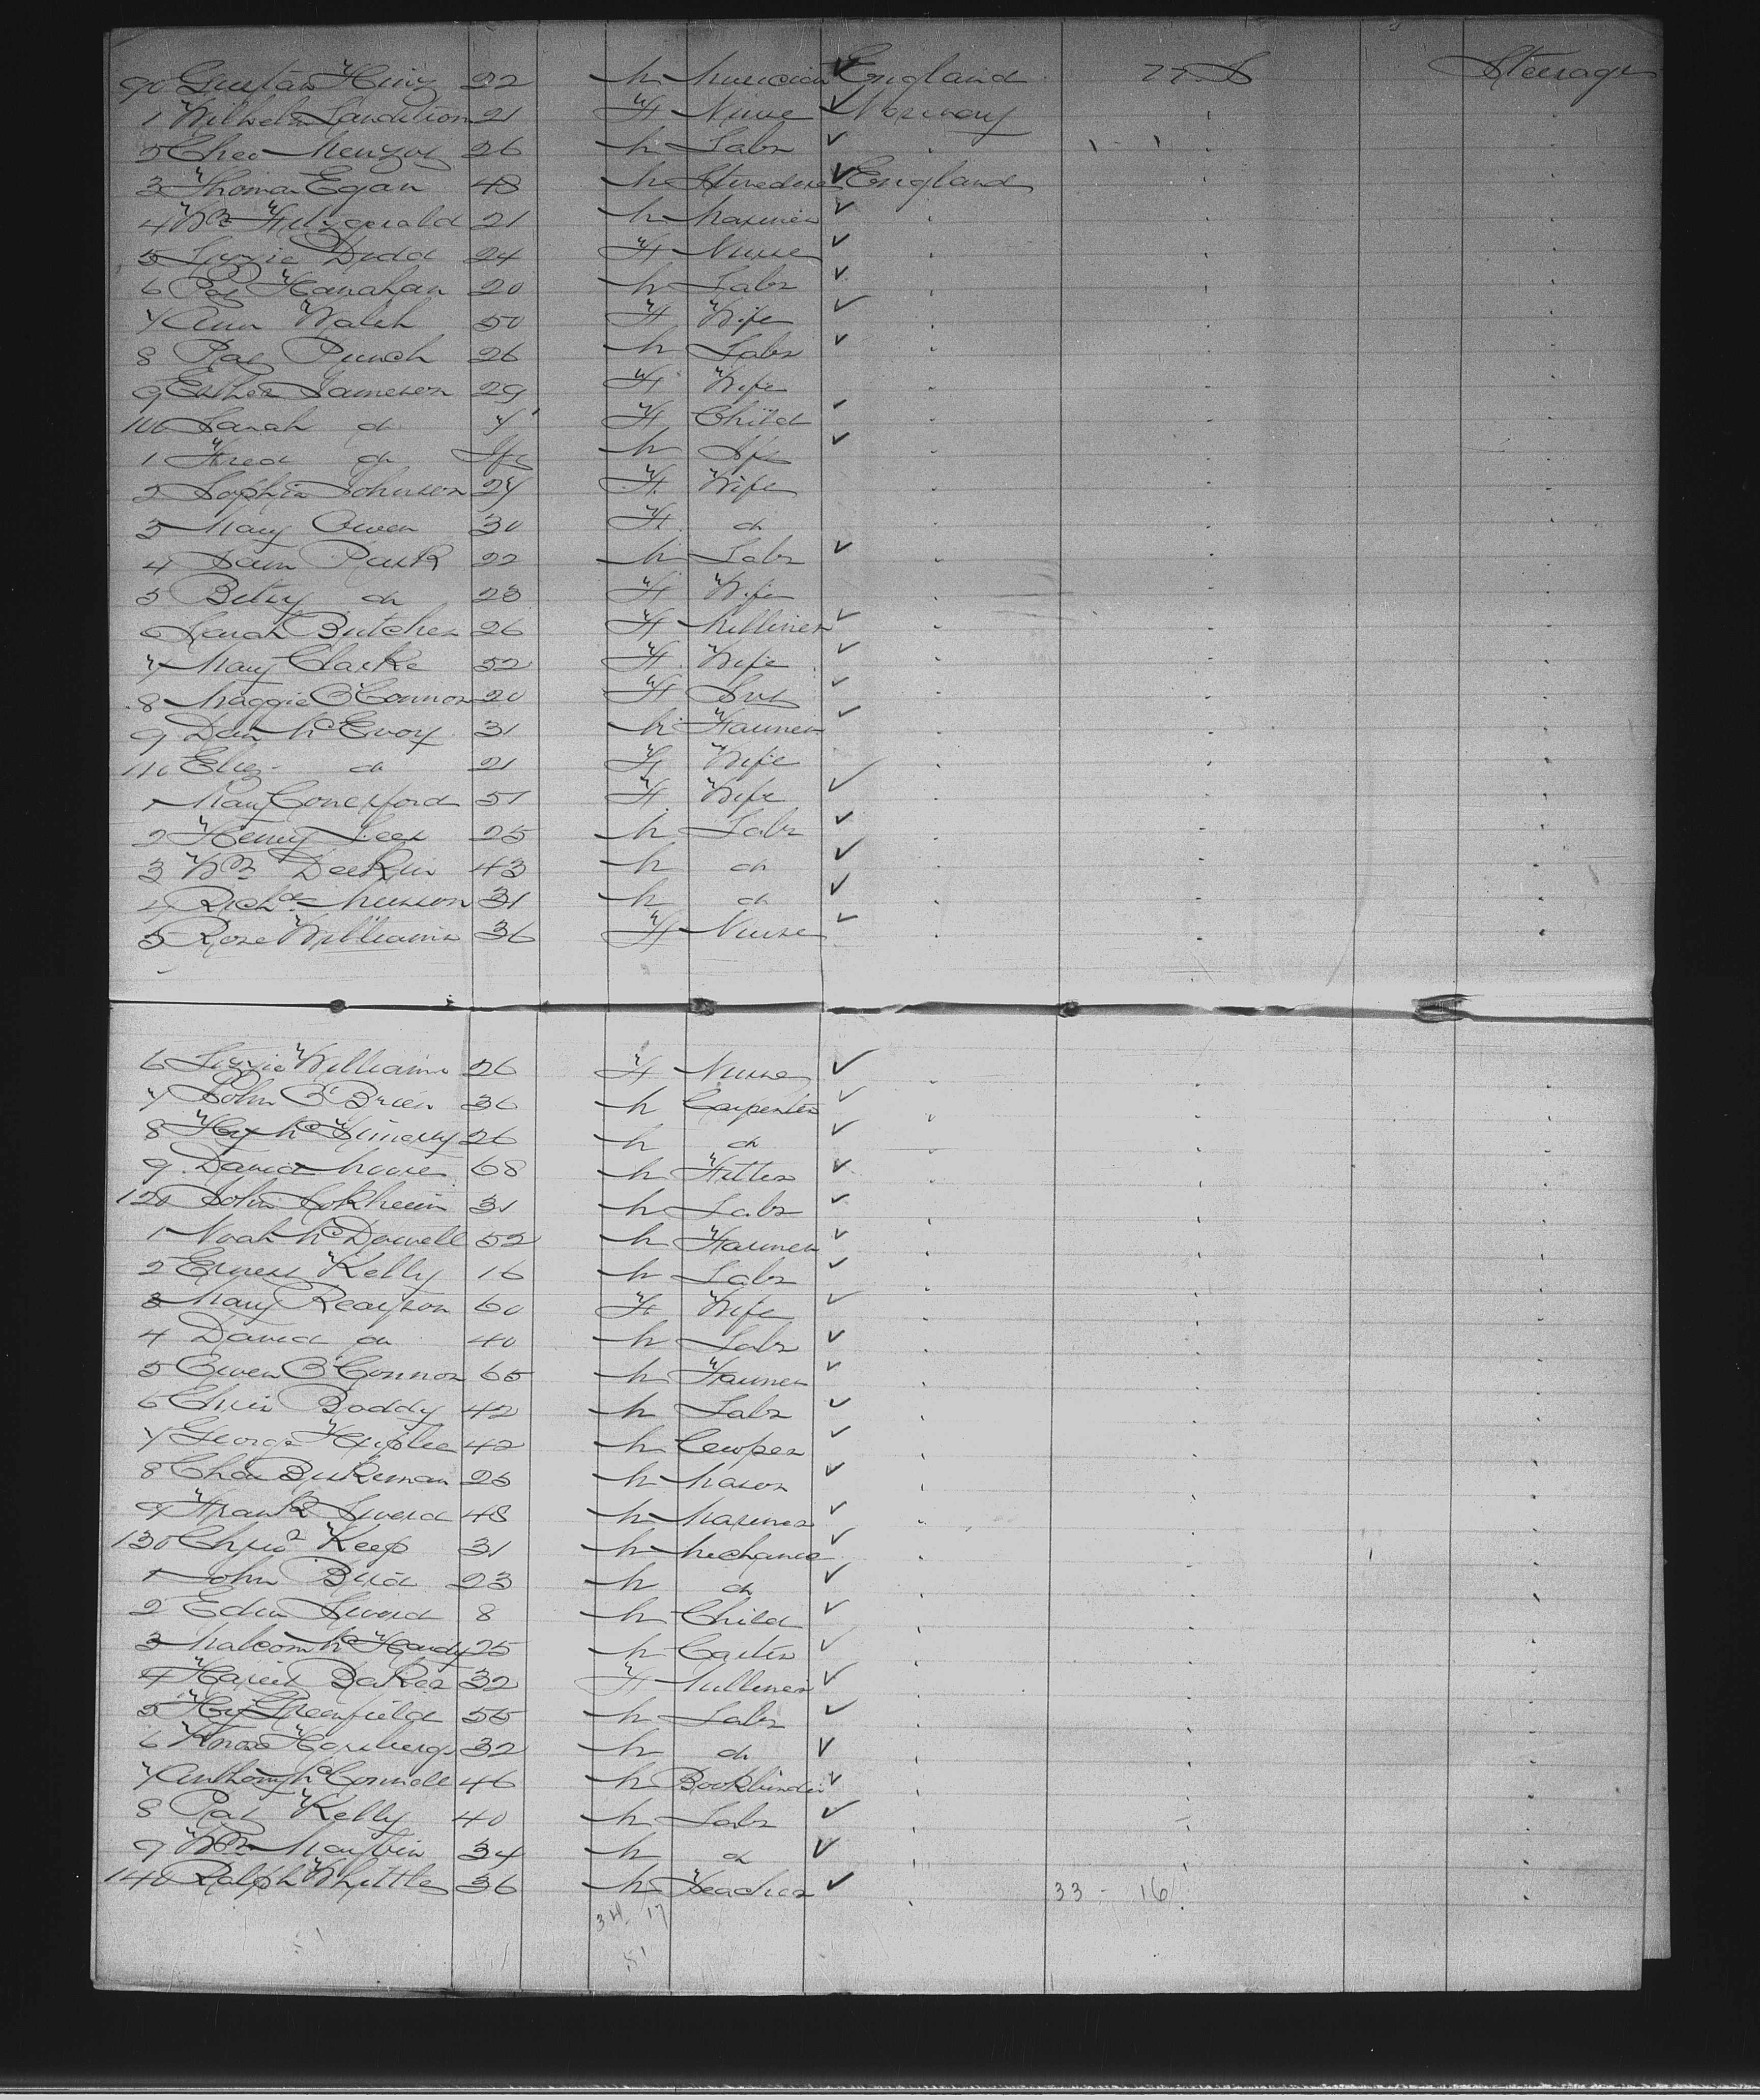 90 Gustav Heinz 22 M Musician ✓ England U.S. Steerage
1 Wilhelm 21 F Nurse ✓ Norway
2 Theo 26 M Labr ✓ 1 - 1
3 Thomas Egan 43 M Stevedore ✓ England
4 Wm Fitzgerald 21 M Mariner ✓
5 Lizzie Dodd 24 F Nurse ✓
6 Pat Hanahan 20 M Labr ✓
7 Ann Walsh 50 F Wife ✓
8 Pat Punch 26 M Labr ✓
9 Esther Jameson 29 F Wife
100 Sarah do 7 F Child ✓
1 Fred do Inf M ✓
2 Sophia Johnson 27 F Wife
3 Mary Owen 30 F do
4 Sam Park 22 M Labr ✓
5 Betsy do 23 F Wife
6 Sarah Butcher 26 F Milliner ✓
7 Mary Clarke 52 F Wife ✓
8 Maggie O'Connor 20 F Svt ✓
9 Dan McEvoy 31 M Farmer ✓
110 Eliz do 21 F Wife
1 Mary 51 F Wife ✓
2 Henry Lees 25 M Labr ✓
3 Wm Deakin 43 M do ✓
4 Richd Musson 31 M do ✓
5 Rose Williams 36 F Nurse ✓
6 Lizzie Williams 26 F Nurse ✓
7 John O'Brien 36 M Carpenter ✓
8 Hy 26 M do ✓
9 David Moore 68 M Fitter ✓
120 John 31 M Labr ✓
1 Noah McDowell 52 M Farmer ✓
2 Ernest Kelly 16 M Labr ✓
3 Mary Rearson 60 F Wife ✓
4 David do 40 M Labr ✓
5 Owen O'Connor 65 M Farmer ✓
6 Chris Boddy 42 M Labr ✓
7 George 42 M Cowper ✓
8 Chas 25 M Mason ✓
9 Frank Sword 48 M Mariner ✓
130 Keep 31 M Mechanic ✓
1 John Bird 23 M do ✓
2 Edwin Sword 8 M Child ✓
3 Malcom McHardy 25 M Carter ✓
4 Hariet Baker 32 F Milliner ✓
5 Hy Greenfield 55 M Labr ✓
6 32 M do ✓
7 Anthony McConnell 46 M Bookbinder ✓
8 Pat Kelly 40 M Labr ✓
9 Wm 34 M do ✓
140 Ralph Whittle 36 M Teacher ✓ 33 - 16
34 - 17
51 51